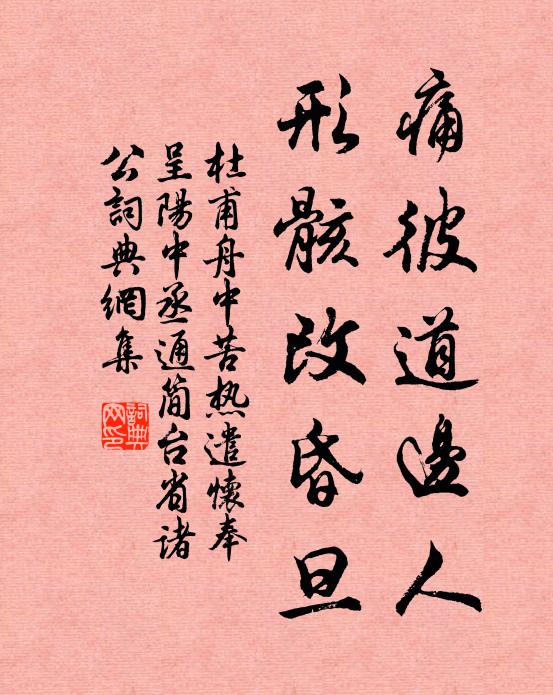 痛彼道邊人
形骸改昏旦
杜甫舟中苦热遣懷奉
呈陽中丞通简台省诸
公詞典網集
詞典
网印